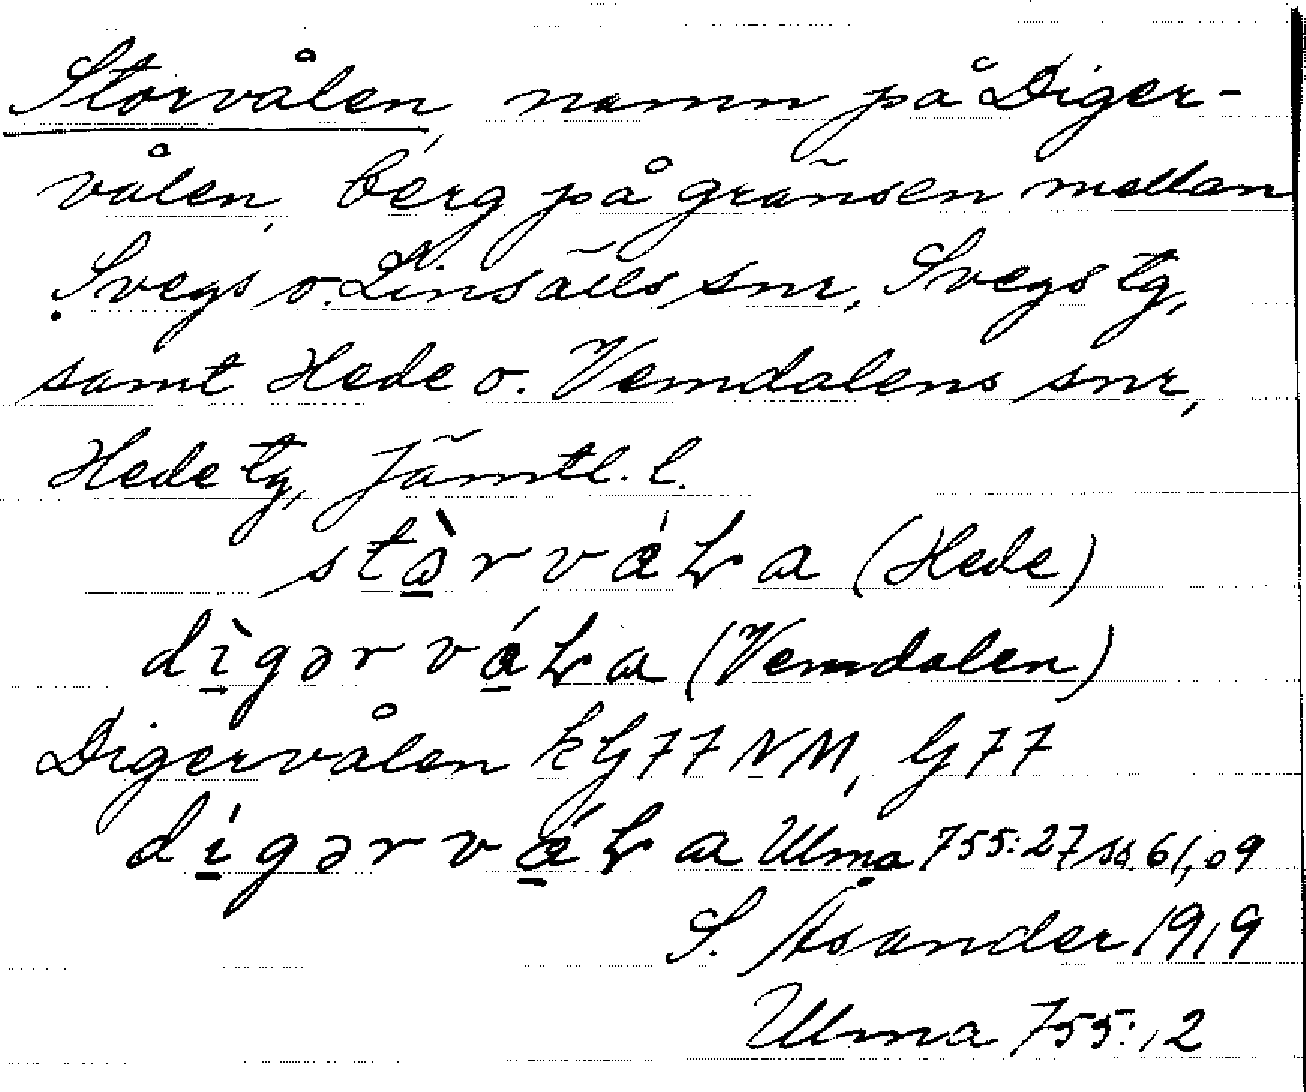 Storvålen, namn på Diger-
vålen, berg på gränsen mellan
Svegs o. Linsälls snr, Svegs tg,
samt Hede o. Vemdalens snr,
Hede tg, Jämtl. l.
(Hede)
(Vemdalen)
Digervålen kG77NM, G77
Ulma 755:27 ss. 61, 09
S. Åsander 1919
Ulma 755:12